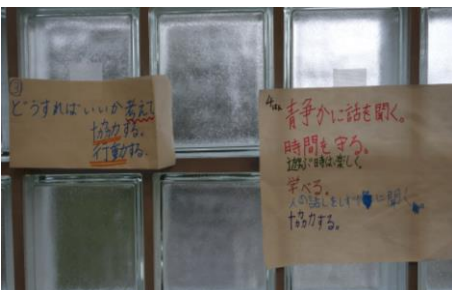 ③
どうすればいいか考えて
協力する。
行動する。
4年
青争かに話を聞く。
時間を守る。
遊ぶ時は楽しく
学べる。
人の話しをしずかに聞く
協力する。